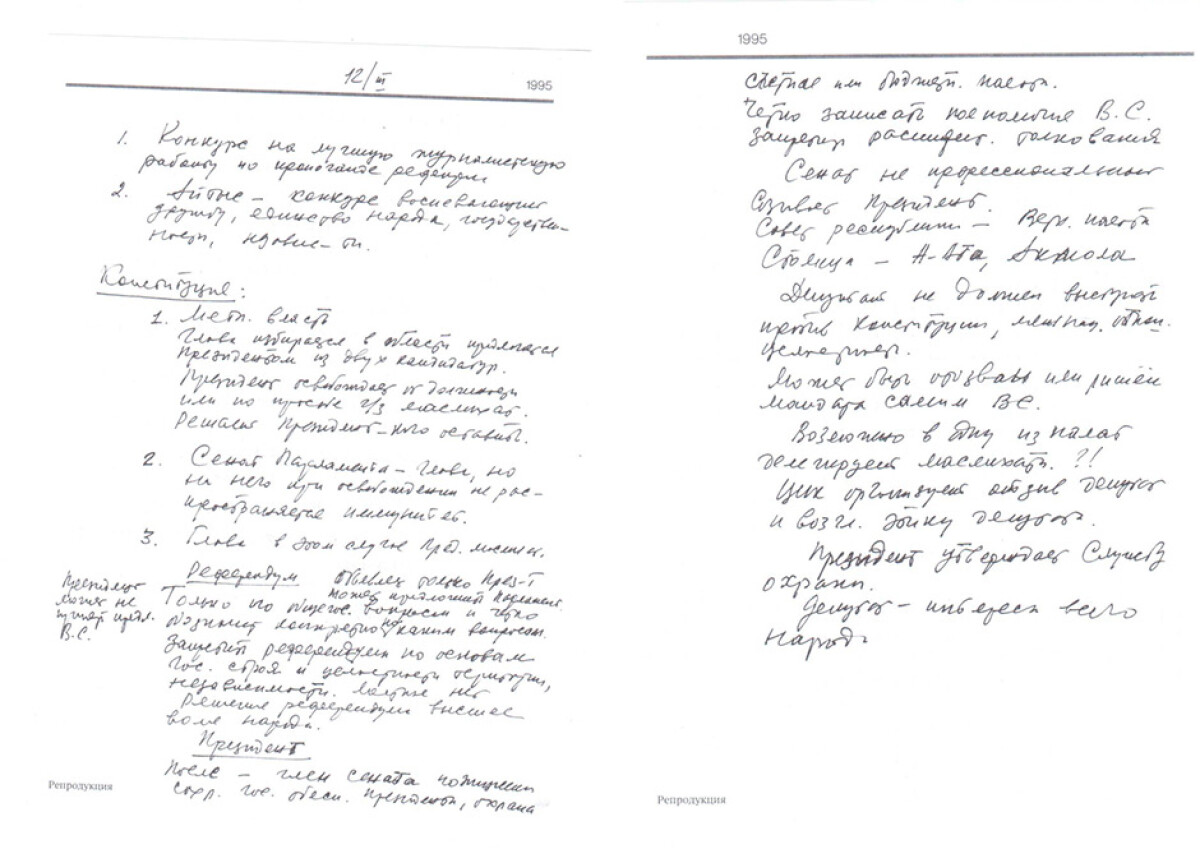 12/III
1995
1. Конкурс на лучшую журналистскую
работу по пропаганде референдума
2. Айтыс – конкурс воспевающий
дружбу, единство народа, государствен-
ности, независ-ти.
Конституция:
1. Местн. власть
Глава избирается в области предлагается
Президентом из двух кандидатур.
Президент освобождает от должности
или по просьбе 2/3 маслихат.
Решает Президент – кого оставить.
2. Сенат Парламента – Глава, но
на него при освобождении не рас-
пространяется иммунитет.
3. Глава в этом случае Пред. маслих.
Референдум объявляет только През-т
может предложить Парламент.
Только по общегос. вопросам и четко
по каким вопросам.
Президент
может не
принять предл.
В.С.
Запретить референдум по основам
гос. строя и целостности территории,
независимости.
Решение референдума высшее
воля народа.
Президент
После – член сената пожизненно
сохр. гос. обесп. президента, охрана
Репродукция
1995
Четко записать полномочия В.С.
Запретить расшифр. толкования
Сенат не профессиональный
Созывает Президент.
Совет республики – Верх. палата
Столица – А-Ата, Акмола
Депутат не должен выступать
против Конституции, межнац. отнош.
целостности.
Может быть отозван или лишен
мандата самим ВС.
Возможно в одну из палат
делегирует маслихаты. ?!
Цик организует отзыв депутат
и возгл. этику депутата.
Президент утверждает Службу
охраны.
Депутат – интересы всего
народа
Репродукция